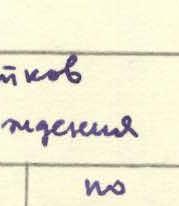 йков
ждения
по